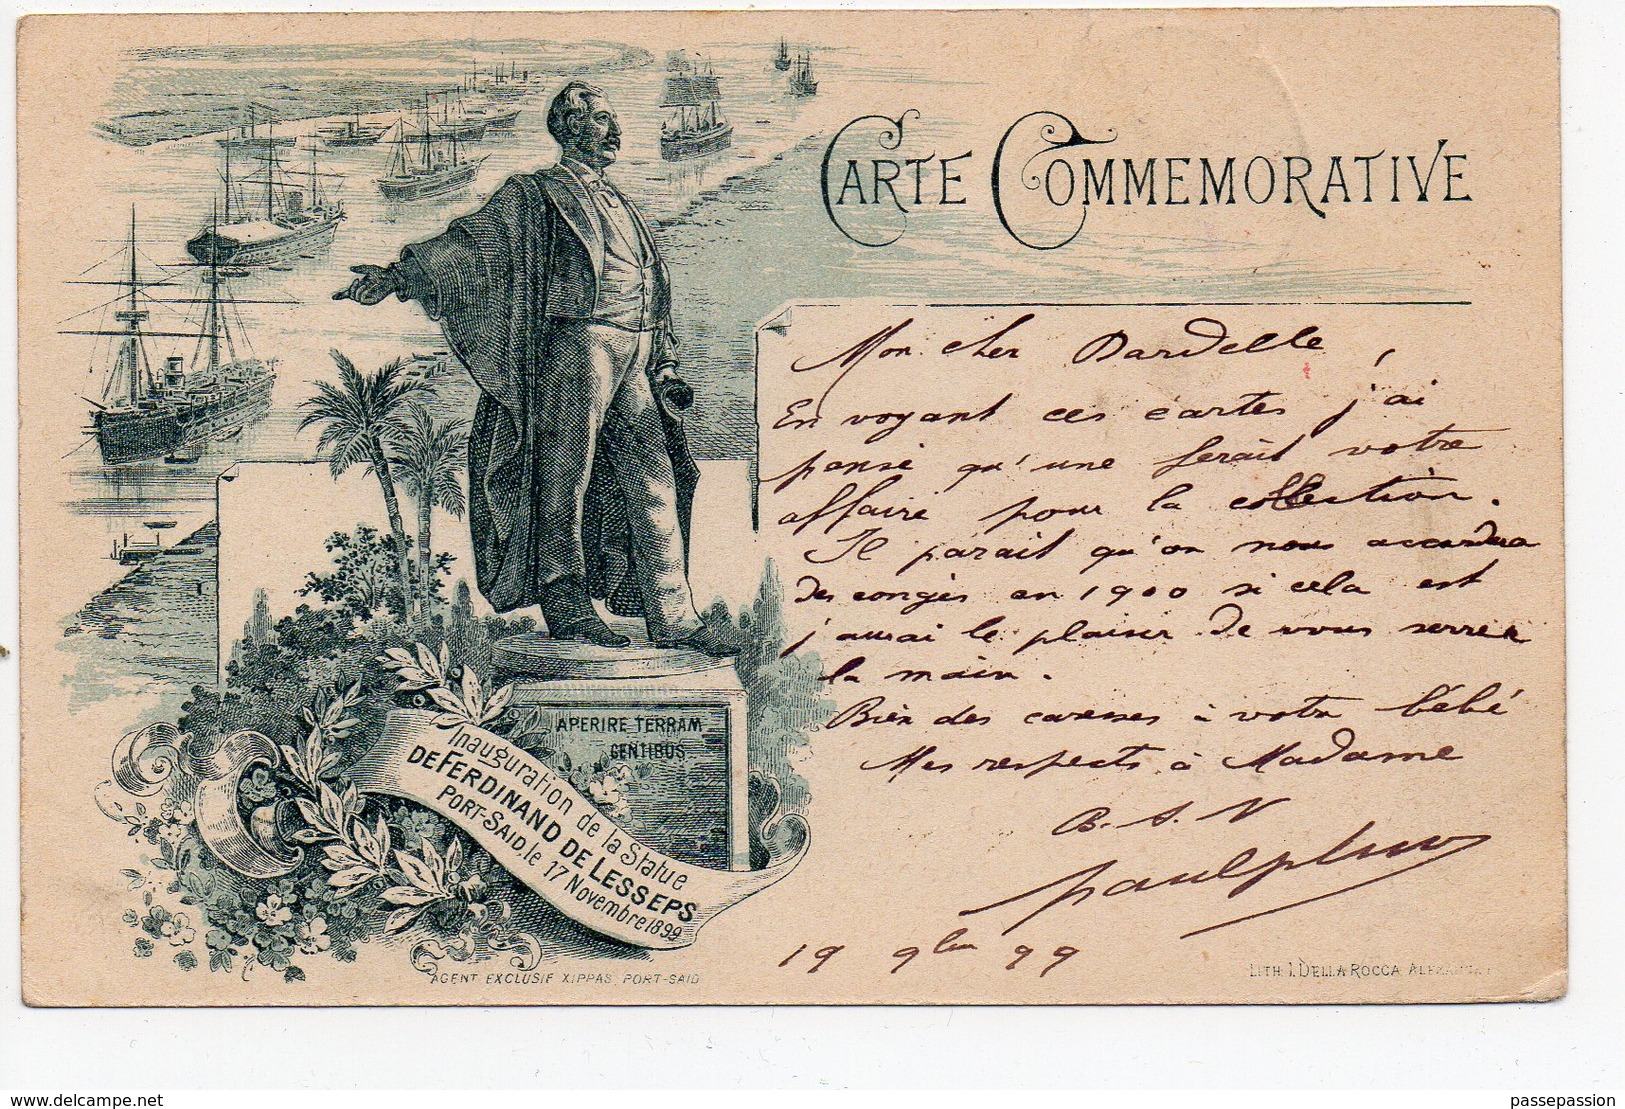 CARTE COMMEMORATIVE
Mon cher Dardelle,
En voyant ces cartes j'ai
pensé qu'une ferait votre
affaire pour la collection.
Il parait qu'on nous accordera
des congés en 1900 si cela est
j'aurai le plaisir de vous serrer
la main.
Bien des caresses à votre bébé
Mes respects à Madame
B. S. V
19 9bre 99
APERIRE TERRAM
GENTIBUS
Inauguration de la Statue
DE FERDINAND DE LESSEPS
PORT-SAID, le 17 Novembre 1899
AGENT EXCLUSIF XIPPAS, PORT-SAID
LITH. I. DELLA ROCCA ALEXANDRIE
www.delcampe.net
passepassion